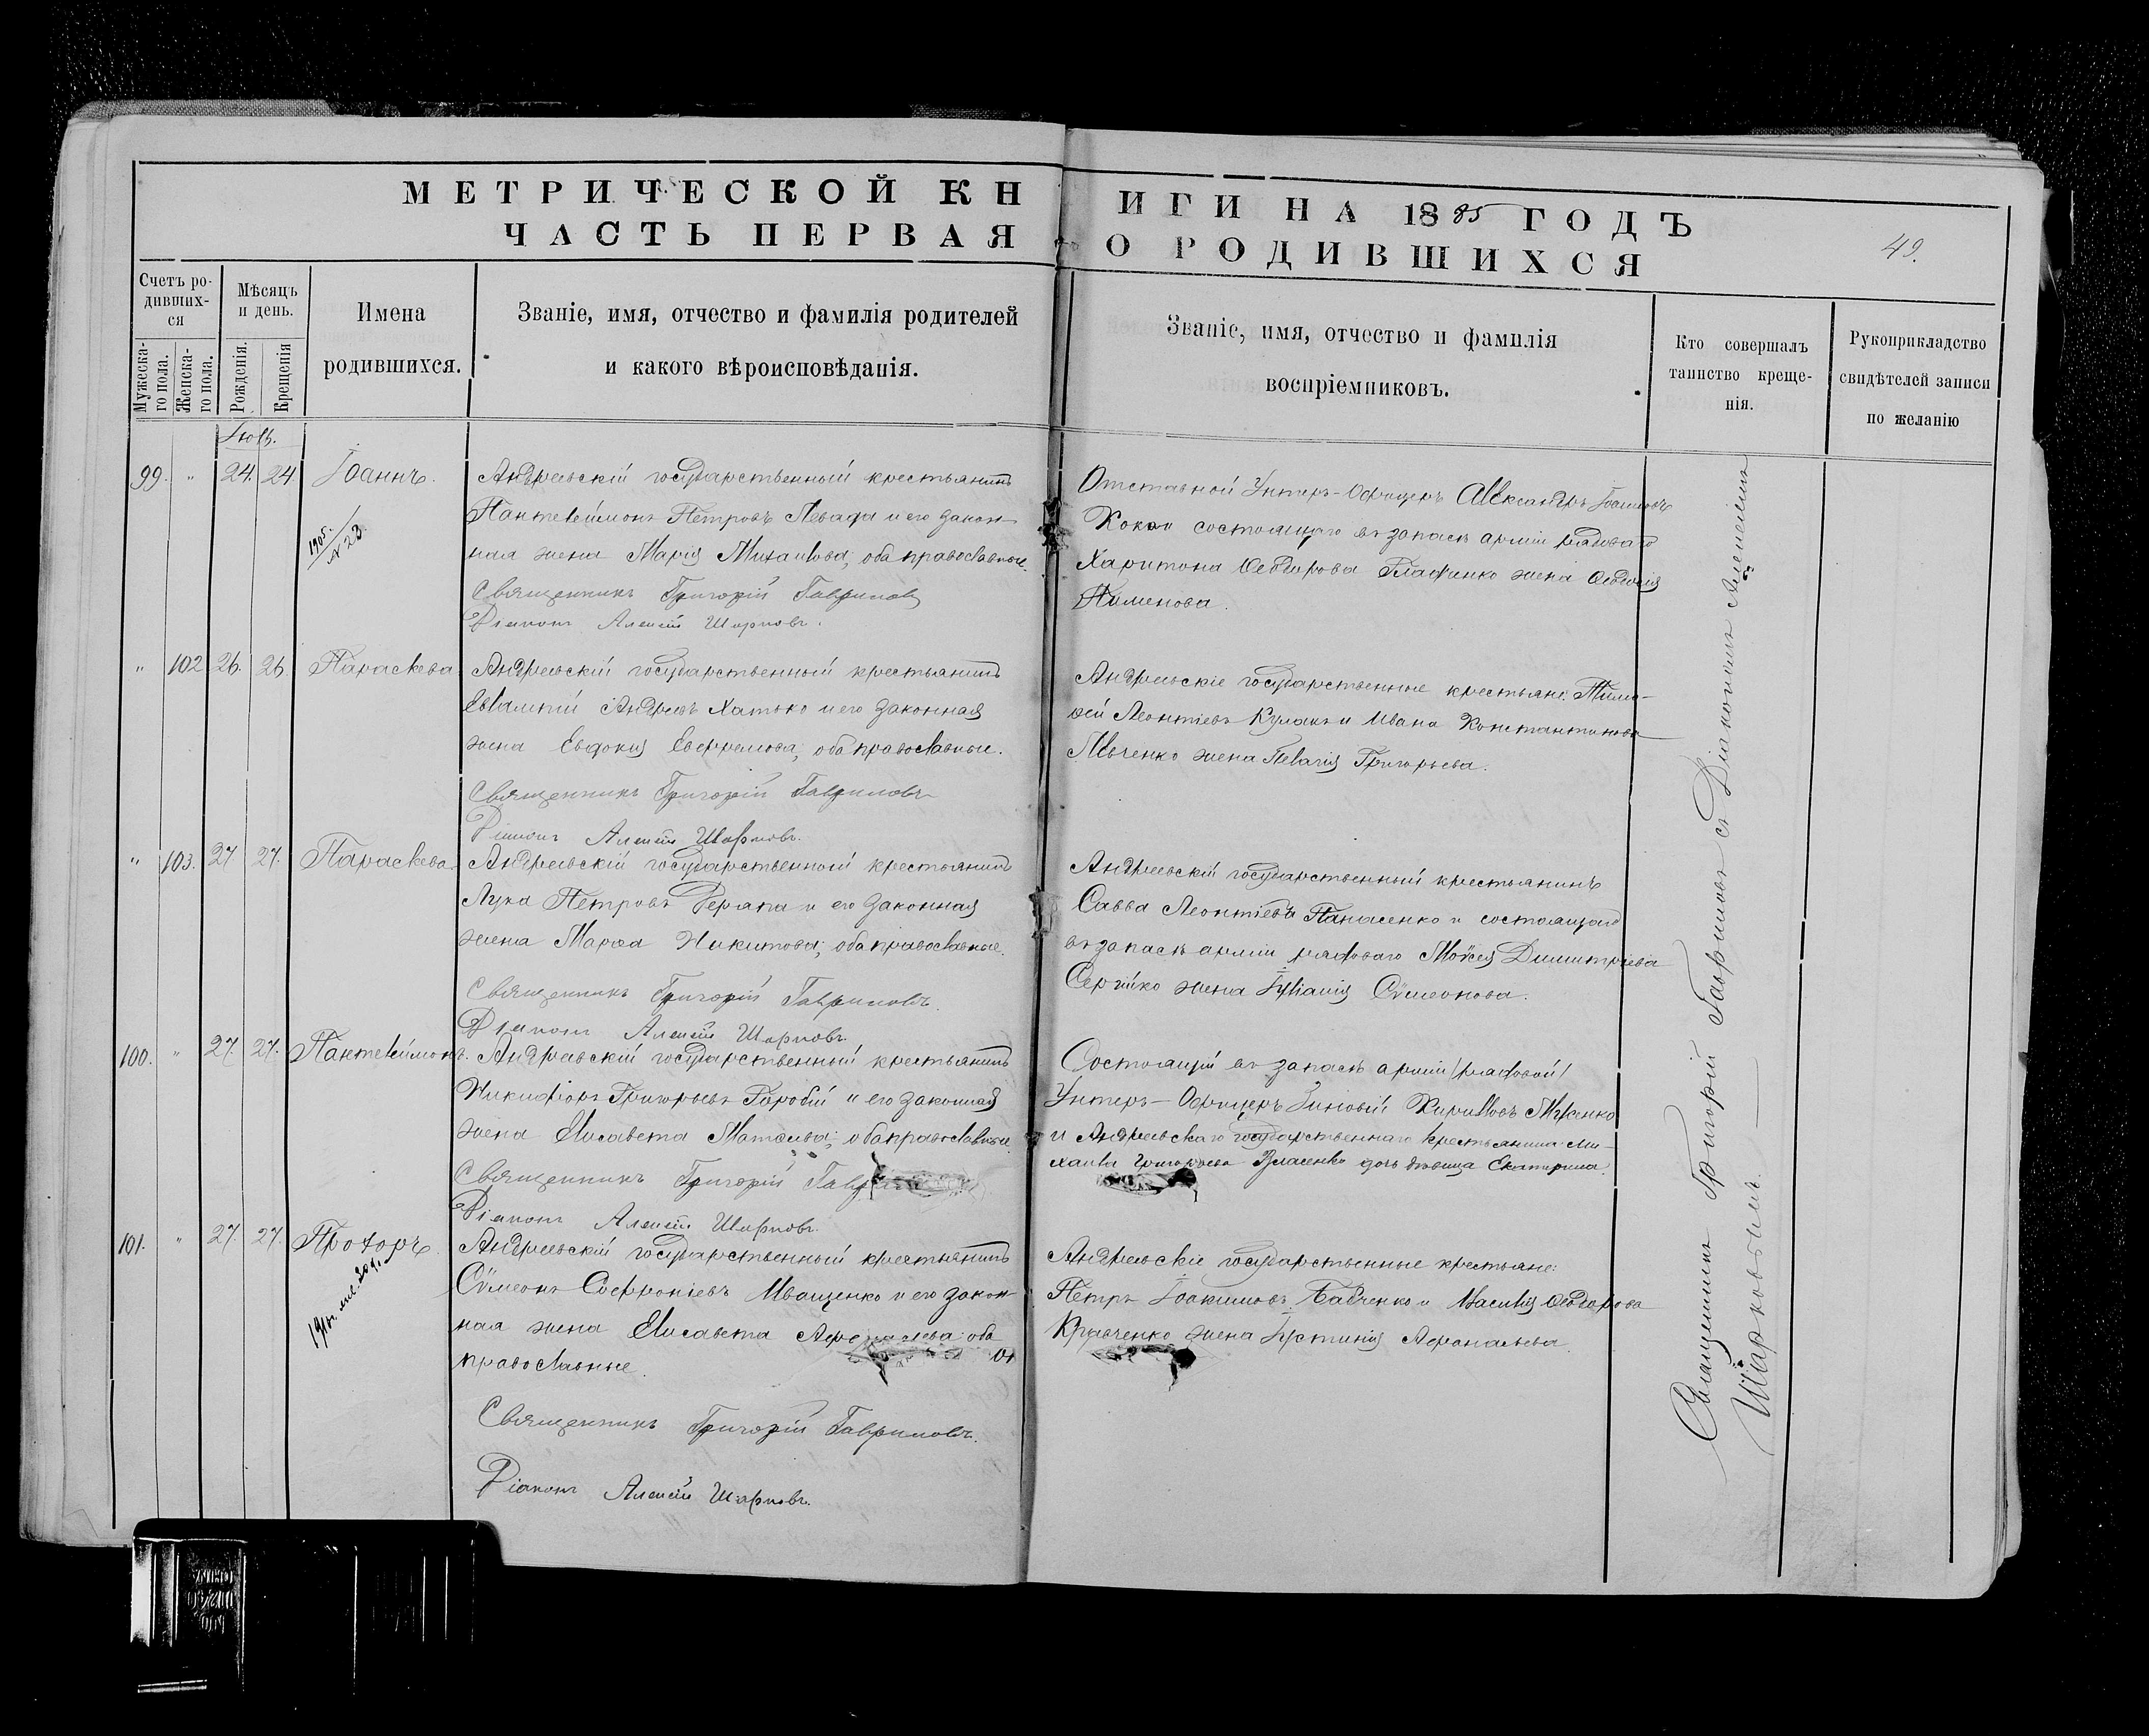 МЕТРИЧЕСКОЙ КН
ЧАСТЬ ПЕРВАЯ
ИГИ НА 1885 ГОДЪ
О РОДИВШИХСЯ
49.
Счетъ ро-
дивших-
ся
Мужеска-
го пола.
Женска-
го пола.
Мѣсяцъ
и день.
Рожденія.
Крещенія
Имена
родившихся.
Званіе, имя, отчество и фамилія родителей
и какого вѣроисповѣданія.
Званіе, имя, отчество и фамилія
воспріемниковъ.
Кто совершалъ
таинство креще-
нія.
Рукоприкладство
свидѣтелей записи
по желанію
Іюль.
99. " 24. 24. Іоаннъ.
1905. N 23.
Андреевскій государственный крестьянинъ
Пантелеймонъ Петровъ Левада и его закон-
ная жена Марія Михаилова; оба православные.
Священникъ Григорій Гавриловъ
Діаконъ Алексій Шарковъ.
Отставной Унтеръ-Офицеръ Александръ Іоанновъ
состоящаго въ запасѣ арміи рядоваго
Харитона Ѳеодорова жена Ѳеодосія
Пименова.
" 102 26. 26. Параскева.
Андреевскій государственный крестьянинъ
Евлампій Андреевъ Хатько и его законная
жена Евдокія Евфремова; оба православные.
Священникъ Григорій Гавриловъ
Діаконъ Алексій Шарковъ.
Андреевскіе государственные крестьяне: Тимо-
ѳей Леонтіевъ Кулакъ и Ивана Константинова
жена Пелагія Григорьева.
" 103. 27 27. Параскева.
Андреевскій государственный крестьянинъ
Лука Петровъ и его законная
жена Марѳа Никитова; оба православные.
Священникъ Григорій Гавриловъ.
Діаконъ Алексій Шарковъ.
Андреевскій государственный крестьянинъ
Савва Леонтіевъ Панасенко и состоящаго
въ запасѣ арміи рядоваго Моѵсея Димитріева
Сергійко жена Іуліанія Сѵмеонова.
100. " 27. 27. Пантелеймонъ.
Андреевскій государственный крестьянинъ
Никифоръ Григорьевъ Горобій и его законная
жена Елисавета Матѳеева; оба православные.
Священникъ Григорій
Діаконъ Алексій Шарковъ.
Состоящій въ запасѣ арміи /рядовой/
Унтеръ-Офицеръ Зиновій Кирилловъ
и Андреевскаго государственнаго крестьянина Ми-
хаила Григорьева Власенко дочь дѣвица Екатерина.
101. " 27. 27. Прохоръ.
Андреевскій государственный крестьянинъ
Сѵмеонъ Софроніевъ Иващенко и его закон-
ная жена Елисавета оба
православные.
Священникъ Григорій Гавриловъ.
Діаконъ Алексій Шарковъ.
Андреевскіе государственные крестьяне:
Петръ Іоакимовъ Бабченко и Василія Ѳеодорова
Кравченко жена Іустинія Аѳанасьева.
Священникъ Григорій Гавриловъ съ Діакономъ Алексіемъ
Шарковымъ.